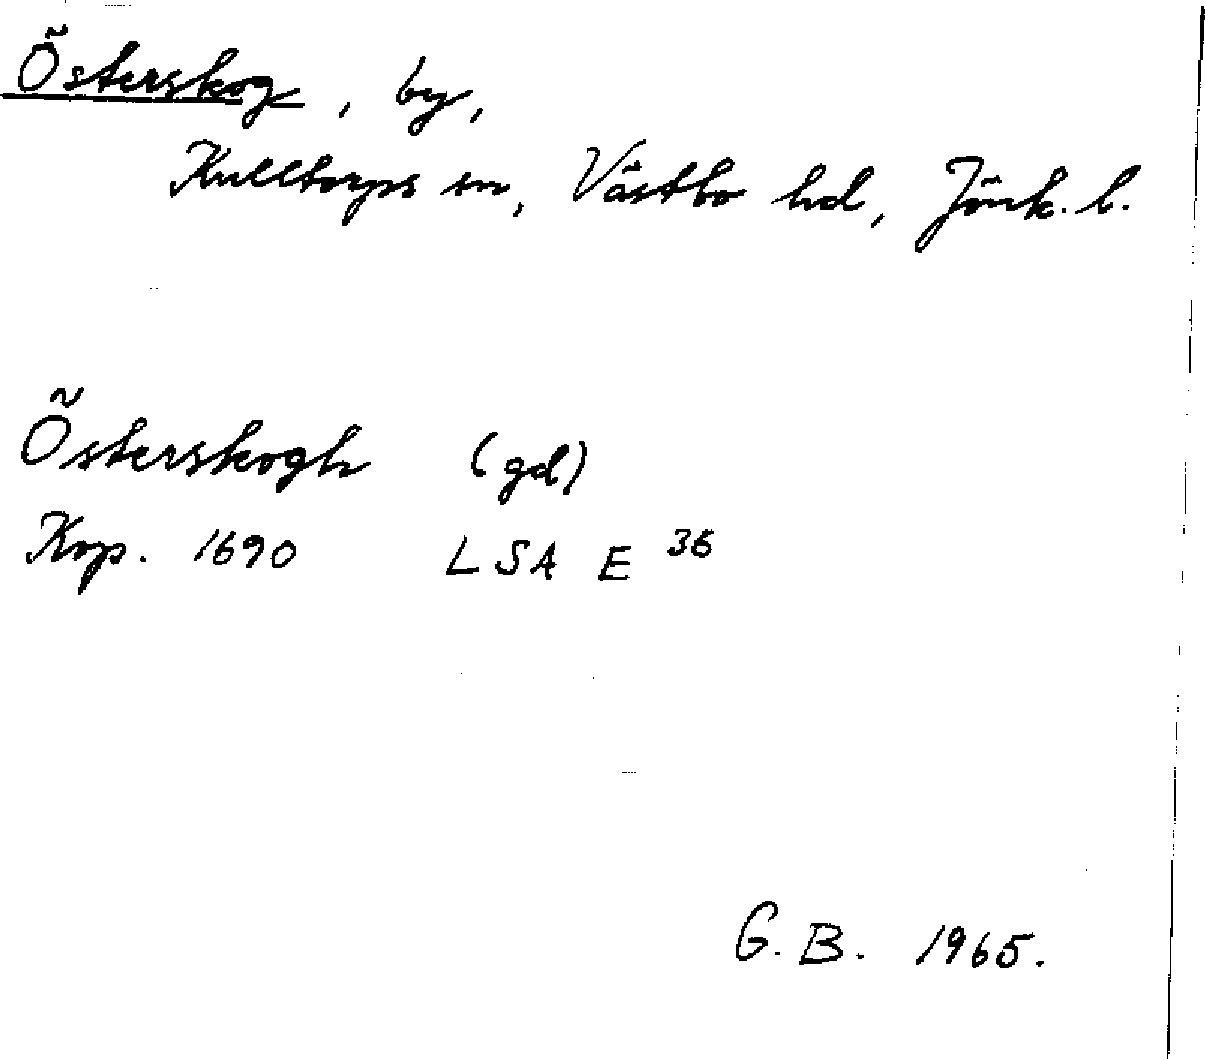 Österskog, by,
Kulltorps sn, Västbo hd, Jönk. l.
Österskogh (gd)
Kop. 1690 LSA E 36
G. B. 1965.